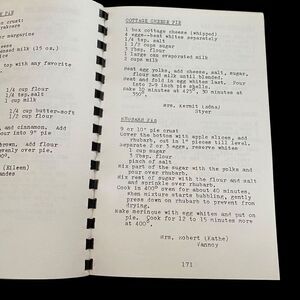 PIE
crust:
crackers
or margarine
cheese
densed milk (15 oz.)
nce
top with any favorite
1/4 cup flour
1/4 tsp. salt
1 cup milk
1/4 cup butter-soft
1/2 cups flour
and cinnamon. Add
r into 9" pie
brown, add flour
evenly over pie.
0°.
(Eileen)
andes
COTTAGE CHEESE PIE
1 box cottage cheese (whipped)
4 eggs--beat whites separately
1/4 tsp. salt
1 1/2 cups sugar
3 Tbsp. flour
1 large can evaporated milk
2 cups milk
Beat egg yolks, add cheese, salt, sugar,
flour and milk until blended.
Beat and fold in egg whites last. Pour
into 7-9 inch pie shells.
Bake 10 minutes at 425°, 30 minutes at
350°.
Mrs. Kermit (Edna)
Styer
RHUBARB PIE
9 or 10" pie crust
Cover the bottom with apple slices, add
rhubarb, cut in 1" pieces till level.
Separate 2 or 3 eggs, reserve whites
1 cup sugar
3 Tbsp. flour
pinch of salt
Mix part of the sugar with the yolks and
pour over rhubarb.
Mix rest of sugar with the flour and salt
and sprinkle over rhubarb.
Cook in 400° oven for about 40 minutes.
When mixture starts bubbling, gently
press down on rhubarb to prevent from
drying.
Make meringue with egg whites and put on
pie. Cook for 12 to 15 minutes more
at 400°.
Mrs. Robert (Kathe)
Vannoy
171